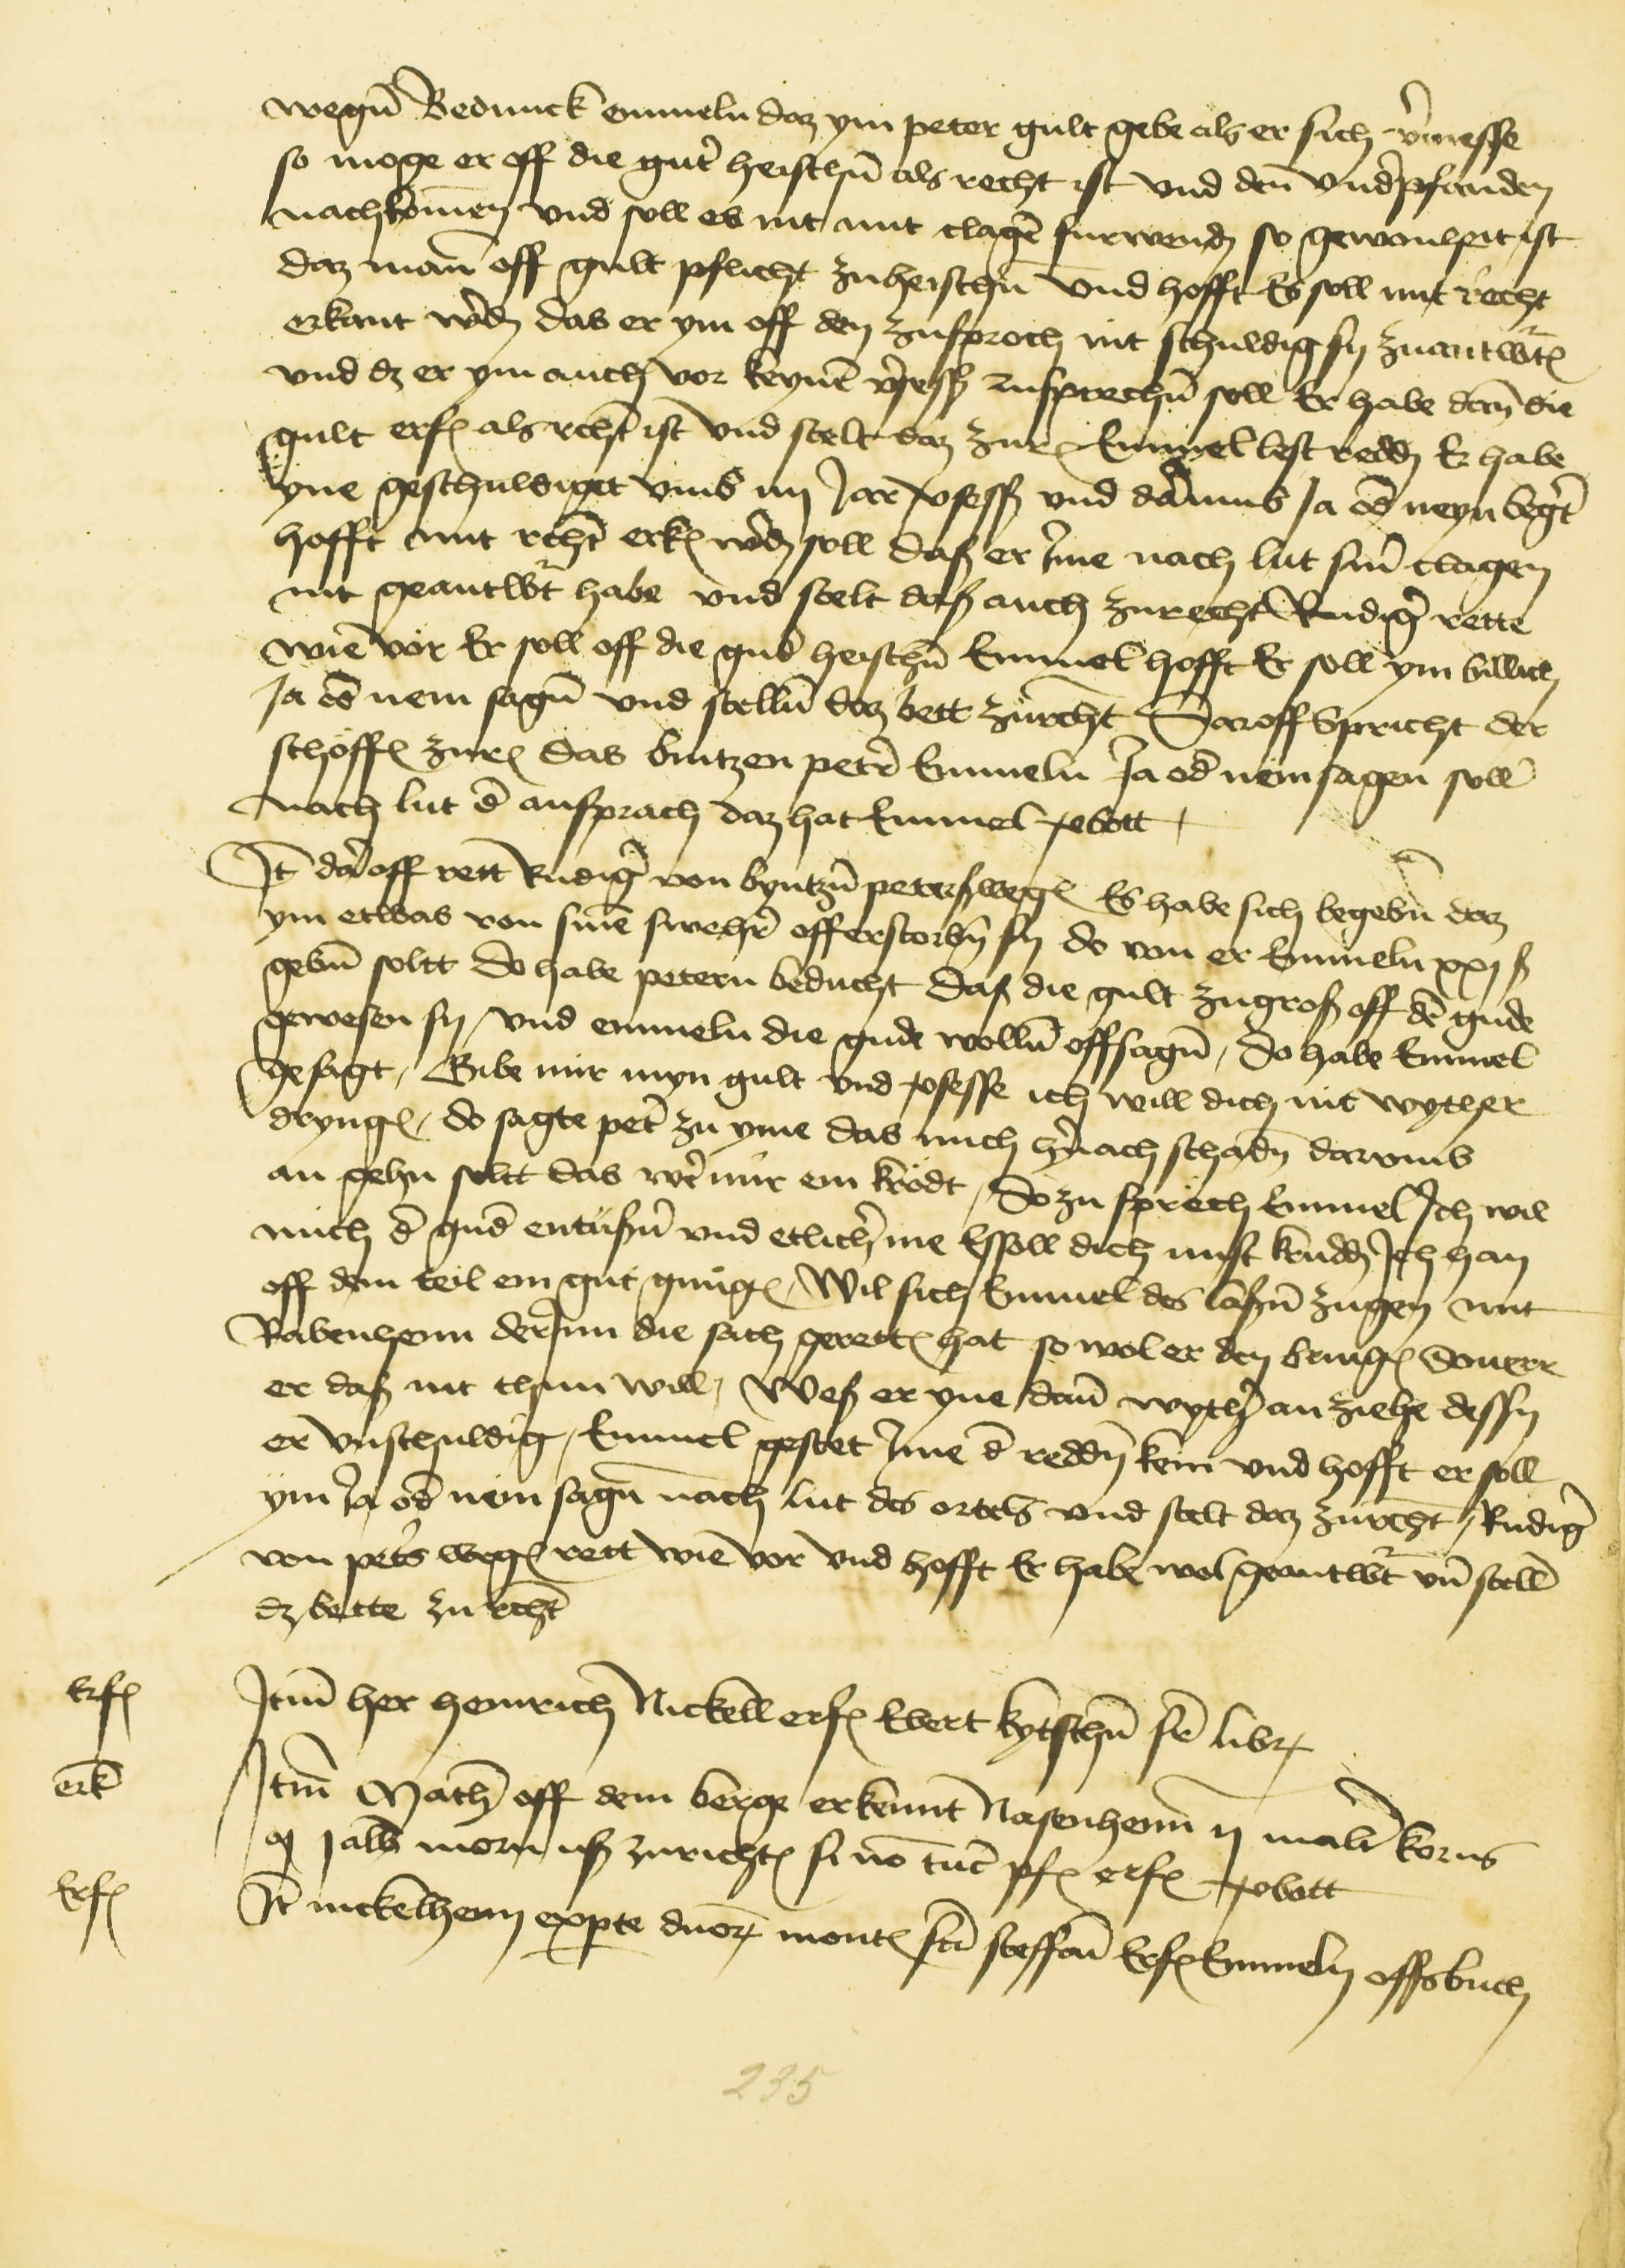 wegen Bedunck emmeln daz ym peter gult gebe als er sich v'messe
so moge er off die gut' heischen als recht ist vnd den vnd'pfanden
nachkomen vnd soll es nit mit clagen furwend so gewonlich ist
daz man off gult pflicht zu heischen vnd hofft Es soll mit recht
erkant w'd das er ym off den zusproch nit schuldig sy zuantw't
vnd dz er ym auch vor keyne v'sess zusprechen soll Er habe dan die
gult erf als recht ist vnd stelt daz zu r Emmel lest redd Er habe
yne geschuldiget vmb iiij Jar v'sess vnd darumb Ja od' neyn begert
hofft mit recht erk w'd soll daß er Ime nach lut sin' clagen
nit geantw't habe vnd stelt daß auch zu recht Rudig' rette
wie vor Er soll off die gude heischen Emmel hofft Er soll ym billich
Ja od' nein sagen vnd stellen daz bett zu recht Daroff Spricht der
scheffen zu r das bintzen peter Emmeln Ja od' nein sagen soll
nach lut d' ansprach daz hat Emmel v'bott
It' dar off rett Rudig' von byntzen peters wegen Es habe sich begeben daz
ym etwas von sine swehr' offerstorben sy do von er Emmeln xxj ß
geben soltt Do habe petern beducht daß die gult zu groß off de gude
gewesen sy vnd emmeln die gude wollen offsagen, Do habe Emmel
gesagt, Gibe mir myn gult vnd v'sesse ich will dich nit wyther
dryngen, do sagte pet' zu yme das mich h'nach schaden darvmb
an gehn soltt das wer mir ein krodt, Do zu sprech Emmel Ich wil
mich d' gud' entußern vnd etlich' me Es soll dich nust krudd Ich han
off dem teil ein gut gnugen, Wil sich Emmel des laßen zugen mit
Rabenhenn der Im die sach gerett hat so wol er den bringen Dont er
er daß nit thun will, Weß er yne dan wyth' an ziehe dess sy
er vnschuldig, Emmel gestet Ime d' redden kein vnd hofft er soll
ym Ja od' nein sagen nach lut des ortels vnd stelt daz zu recht, Rudig'
von peters wegen rett wie vor vnd hofft Er habe wol geantw't vn stellt
dz bette zu recht
Erf Item her Heinrich Nickell erf Ebert kytschen fur libr
erk Item Math' off dem berge erkennt Nasenhenn ij mald' korns
j alb morn uß zuricht si no tunc pf erf v'bott
Erf It' nickelhenn ex pte dnor mont scti steffan Erf Emmeln offsbuch
235